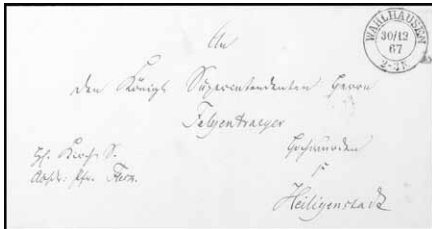 WAHLHAUSEN
30/12
67
2-3N
An
den Königl. Superintendenten Herrn
Felgentraeger
Hochwürden
Heiligenstadt
Kirch. S.